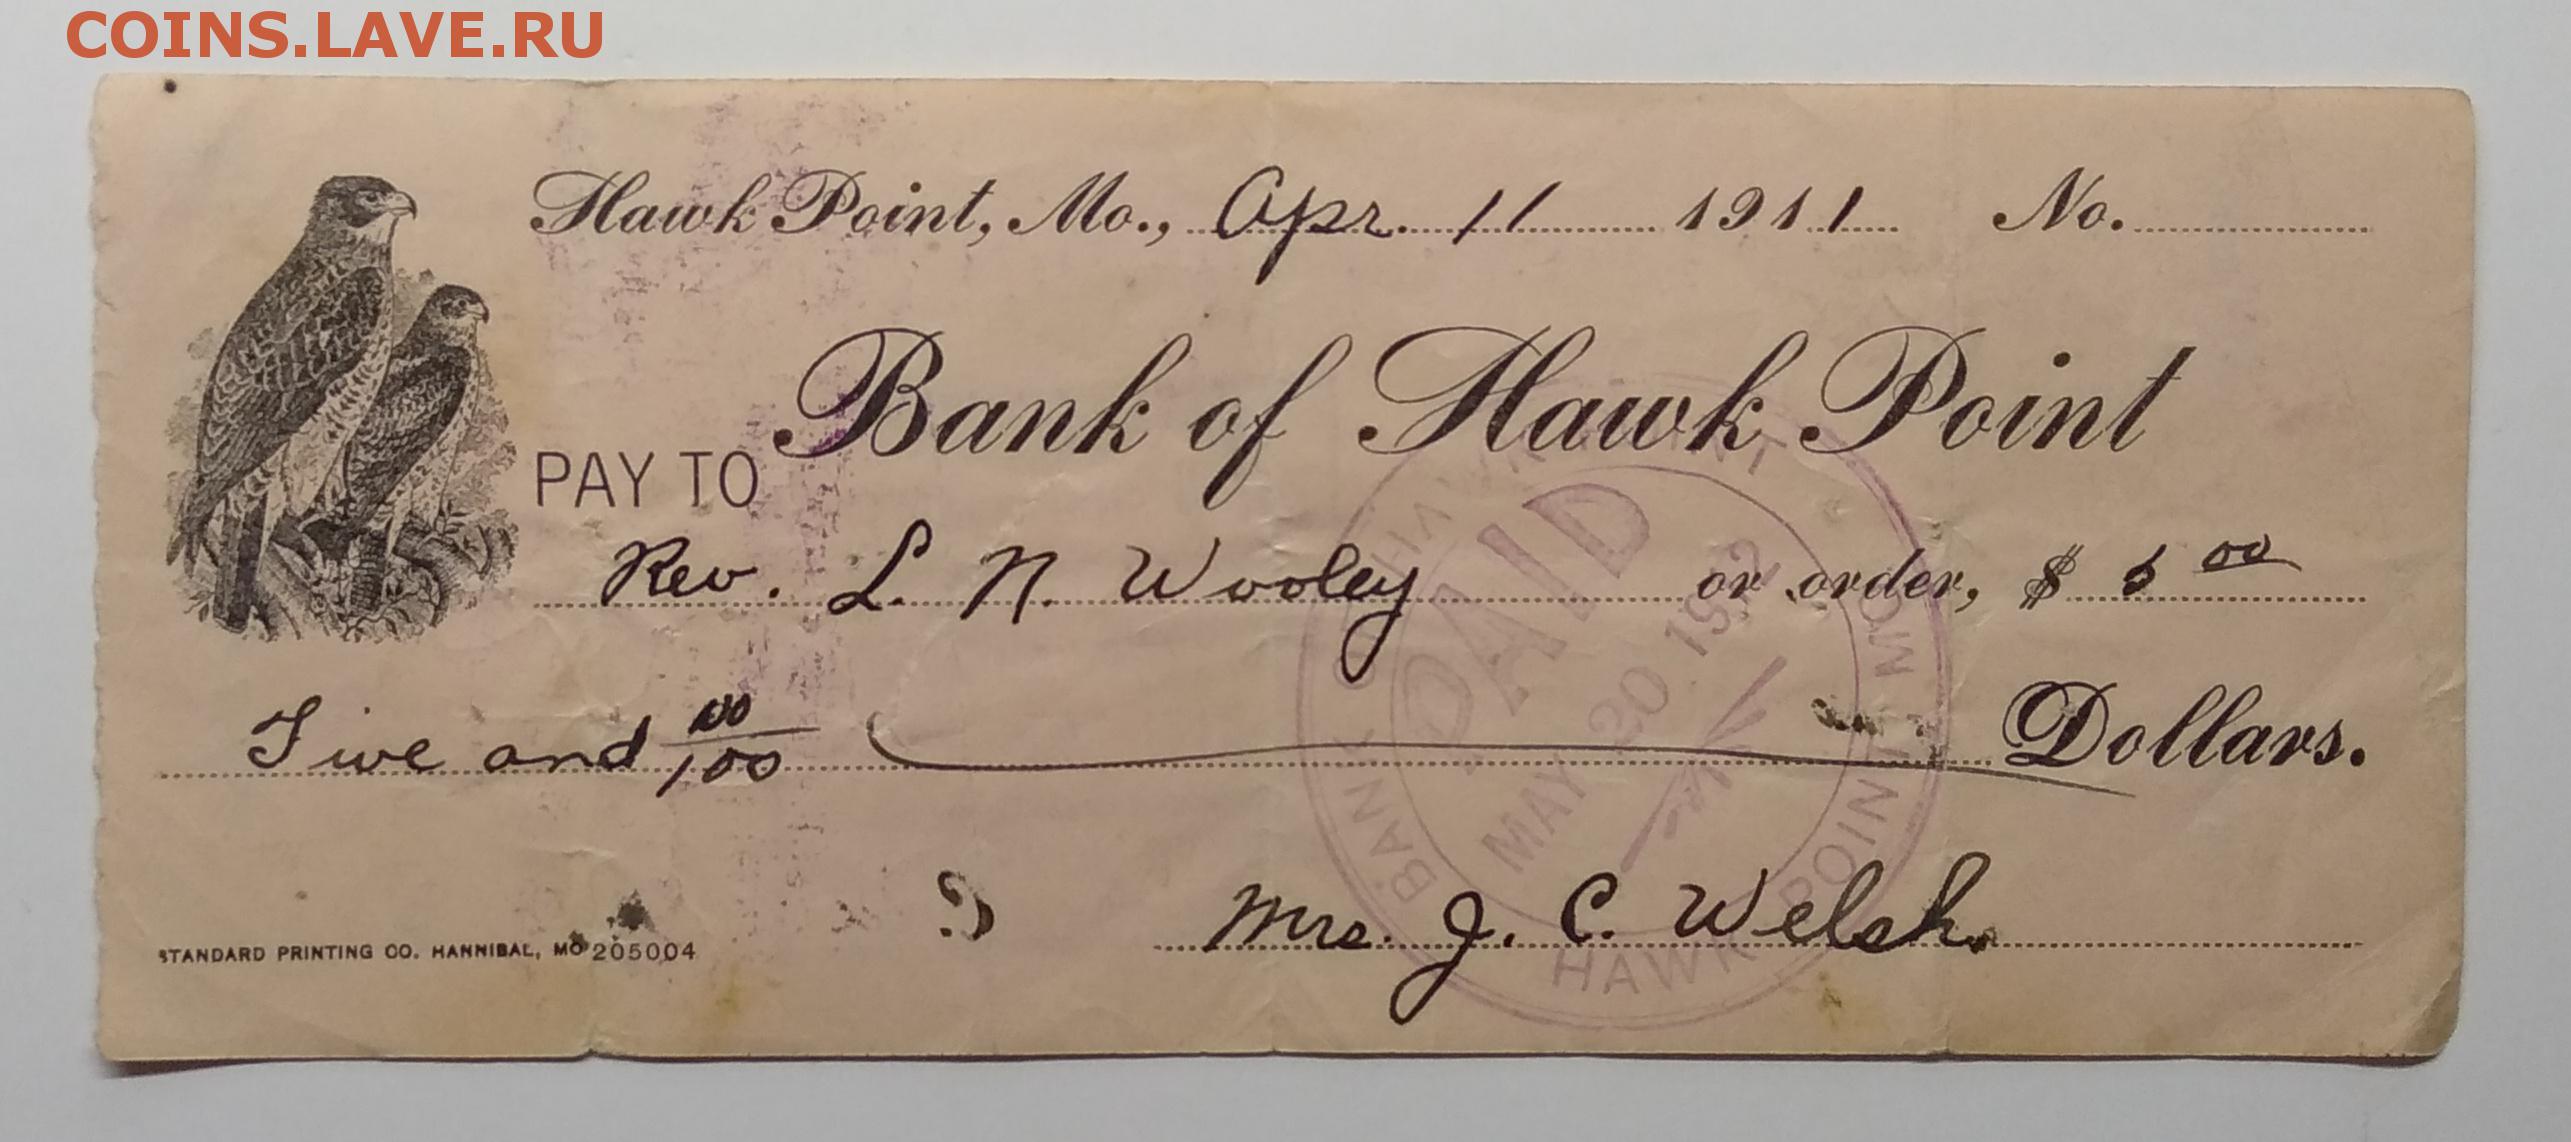 COINS.LAVE.RU
Hawk Point, Mo., Apr. 11 1911 No.
Bank of Hawk Point
PAY TO
Rev. L. N. Wooley or order, $ 5 00
Five and 00/100 Dollars.
Mrs. J. C. Welsh.
STANDARD PRINTING CO. HANNIBAL, MO 205004
BANK HAWK POINT
PAID
MAY 20 1912
HAWK POINT MO.